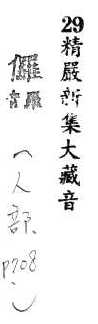 29精嚴新集大藏音
（人部
p708、）